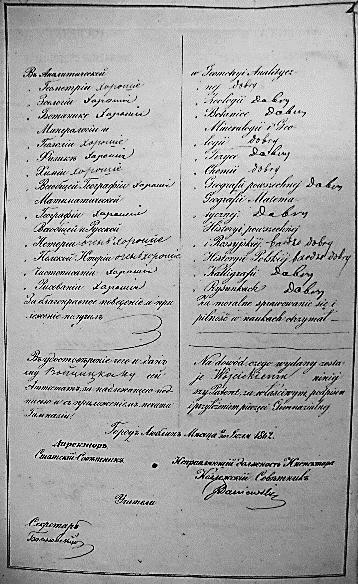 Въ Аналитической
Геометріи хорошіе
Зоологіи хорошіе
Ботанике хорошіе
Минералогіи и
Геогнозіи хорошіе
Физикѣ хорошіе
Химіи хорошіе
Всеобщей Географіи хорошіе
Математической
Географіи хорошіе
Всеобщей и Русской
Исторіи очень хорошіе
Польской Исторіи очень хорошіе
Чистописаніи хорошіе
Рисованіи хорошіе
За благонравное поведеніе и при-
лежаніе получилъ
Въ удостовѣреніе чего и данъ
ему сей
Аттестатъ за надлежащею под-
писью и съ приложеніемъ печати
Гимназіи
w Geometryi Analitycz
nej dobry
Zoologii dobry
Botanice dobry
Mineralogii i Geo
dobry
Fizyce dobry
Chemii dobry
Geografii powszechnej dobry
Geografii Matema
tycznej dobry
Historyi powszechnej
i Rossyjskiej bardzo dobry
Historyi Polskiej bardzo dobry
Kalligrafii dobry
Rysunkach dobry
Za moralne sprawowanie się i
pilność w naukach otrzymał
Na dowód czego wydany zosta-
je niniej
szy Patent za właściwym podpisem
i przyłożeniem pieczęci Gimnazialnej
Городъ Люблинъ Мѣсяца Іюля 1842.
Директоръ
Статскій Совѣтникъ
Исправляющій должность Инспектора
Коллежскій Совѣтникъ
Учители
Секретарь